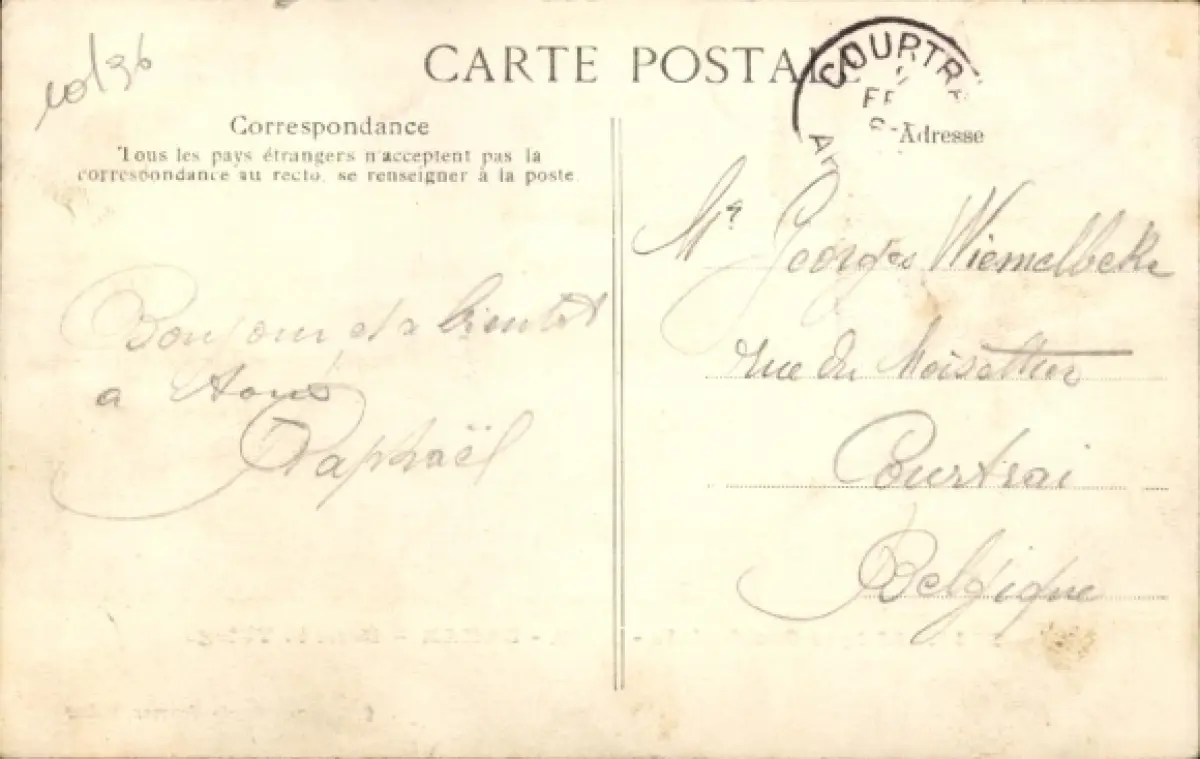 10/36
CARTE POSTALE
COURTR
FE
Correspondance
Tous les pays étrangers n'acceptent pas la
correspondance au recto, se renseigner à la poste.
Adresse
Mr Georges Wiemelbeke
rue du
Courtrai
Belgique
Bonjour et a bientot
a
Raphaël